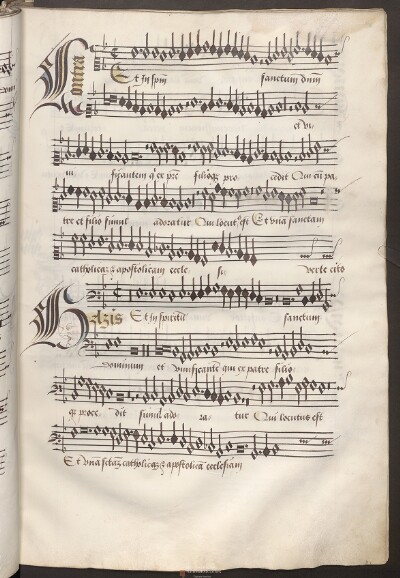 Contra
Et in spm sanctum dnm
et vi
fificantem q ex pre filioq pro cedit Qui cu pa
tre et filio simul adoratur Qui locut9 est Et vna sanctam
catholica z apostolicam eccle si verte cito
Et in spiritu sanctum
dominum et viuificante qui ex patre filio
q proce dit simul ado ra tur Qui locutus est
Et vna scta catholica z apostolica ecclesiam